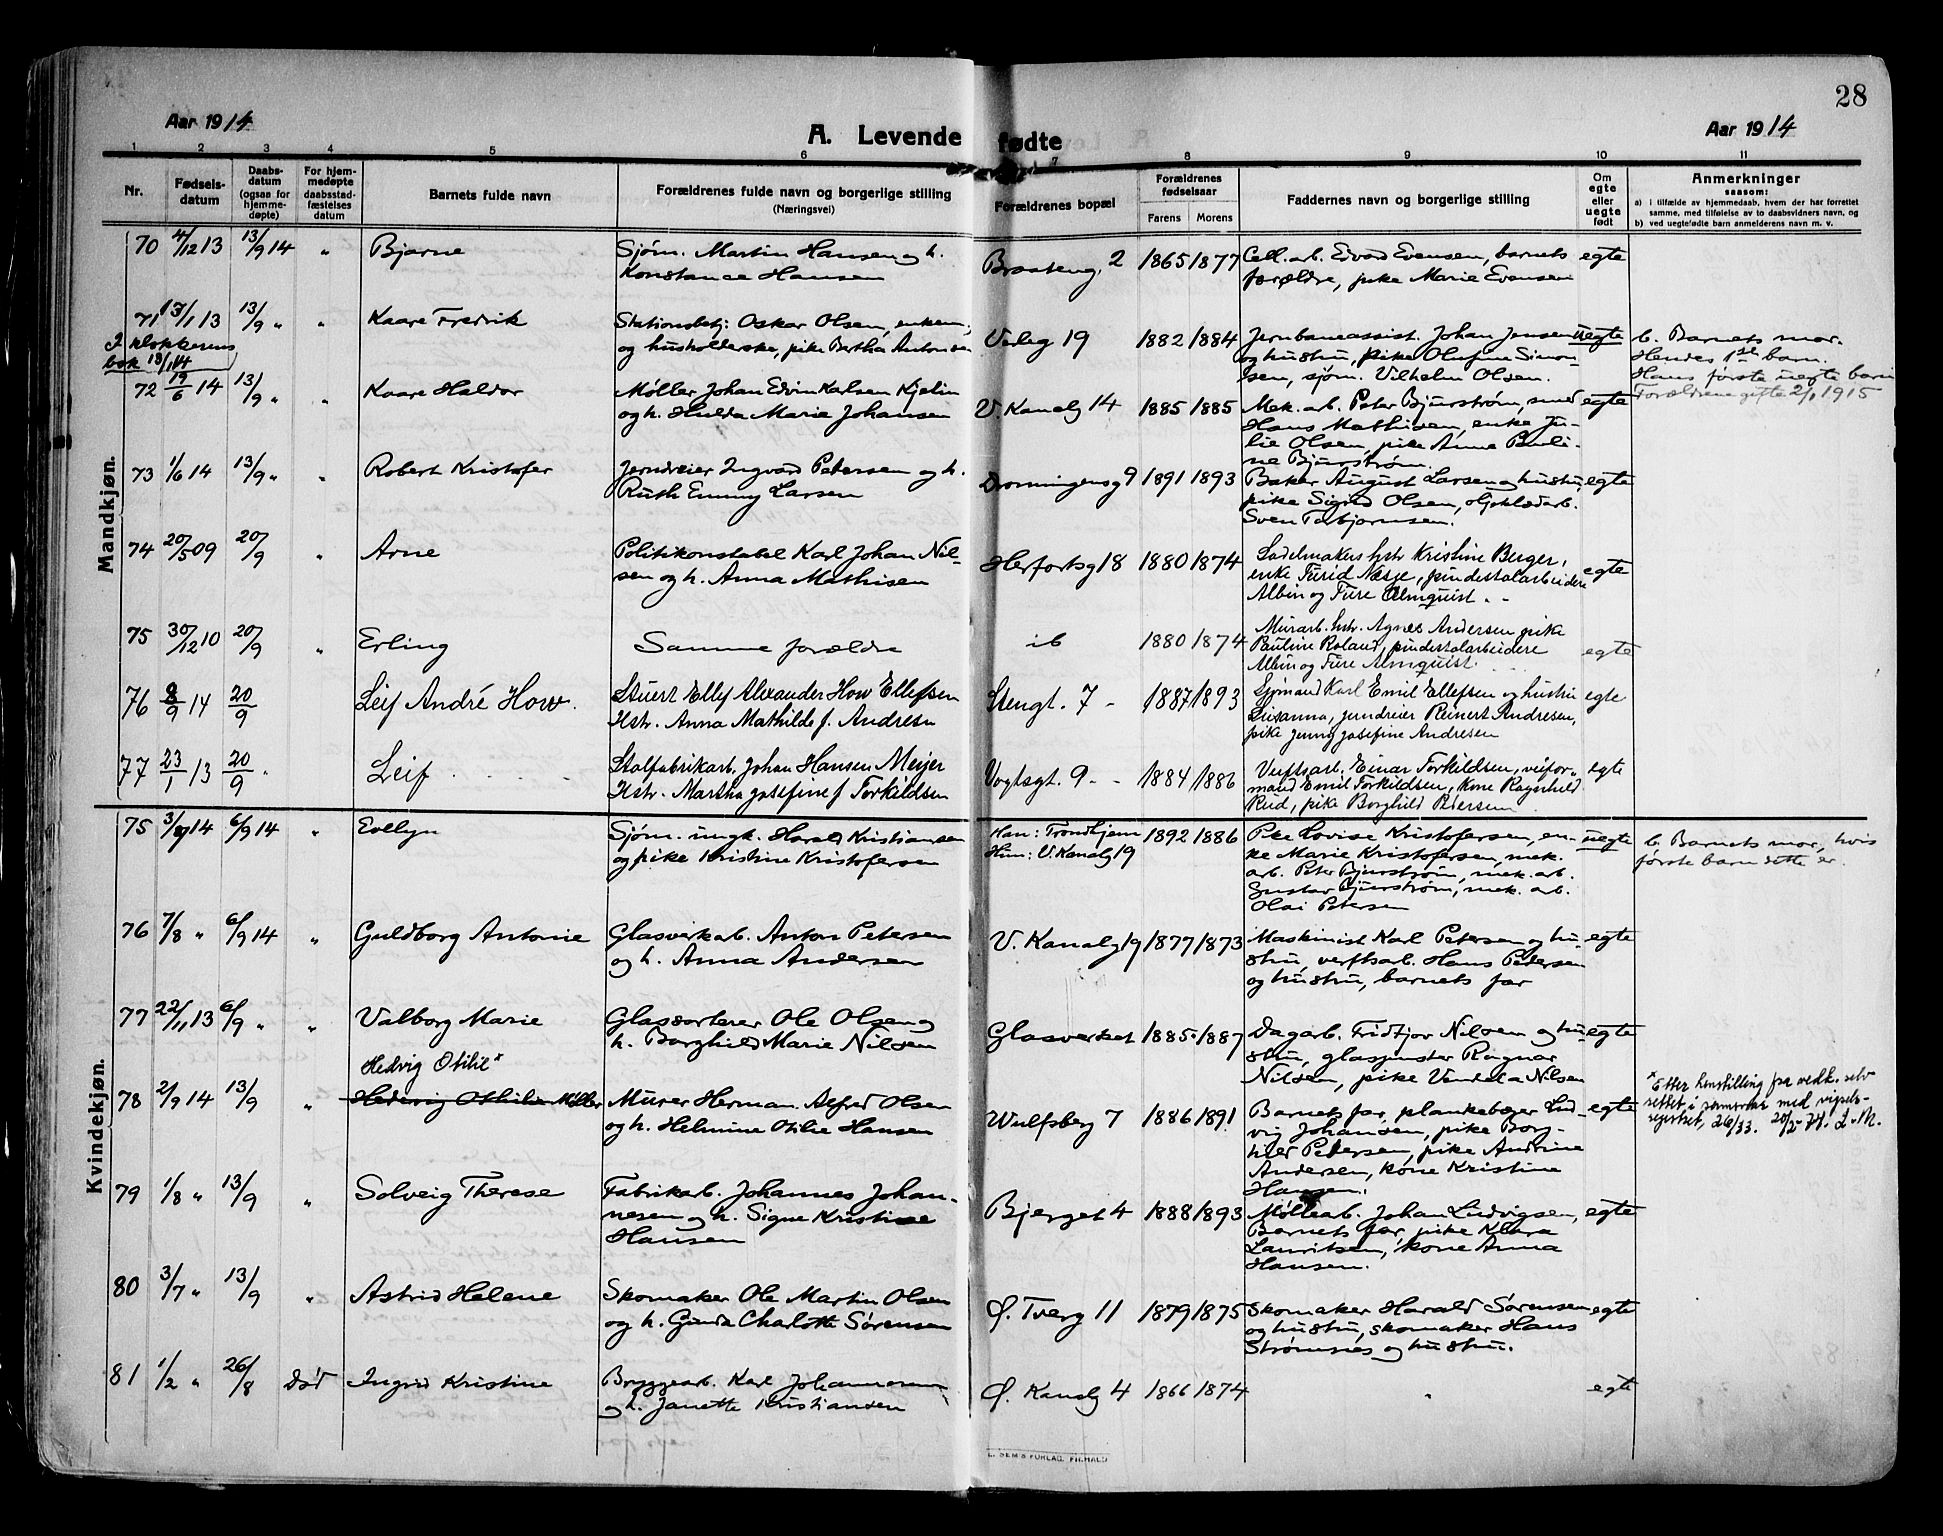 28
Aar 1914
A. Levende fødte
Aar 1914
1 2 3 4 5 6 7 8 9 10 11
Nr.
Fødsels-
datum
Daabs-
datum
(ogsaa for
hjemme-
døpte)
For hjem-
medøpte
daabsstad-
fæstelses
datum
Barnets fulde navn
Forældrenes fulde navn og borgerlige stilling
(Næringsvei)
Forældrenes bopæl
Forældrenes
fødselsaar
Farens Morens
Faddernes navn og borgerlige stilling
Om
egte
eller
uegte
født
Anmerkninger
saasom:
a) i tilfælde av hjemmedaab, hvem der har forrettet
samme, med tilføielse av to daabsvidners navn, og
b) ved uegtefødte barn anmelderens navn m. v.
Mandkjøn.
70 4/12 13 13/9 14 " Bjarne Sjøm. Martin Hansen og h. Braateng. 2 1865 1877 Cell. arb. Edvard Evensen, barnets egte
Konstance Hansen forældre, pike Marie Evensen
71 13/1 13 13/9 " " Kaare Fredrik Stationsbetj: Oskar Olsen, enkem, Varleg 19 1882 1884 Jernbaneassist. Johan Jensen uegte b. Barnets mor.
I klokkerens og husholderske, pike Bertha Antonsen og hustru, pike Olufine Simon- Hendes 1ste barn.
bok 13/1 14 sen, sjøm. Vilhelm Olsen. Hans første uegte barn
Forældrene gifte 2/1 1915
72 19/6 14 13/9 " " Kaare Haldor Møller Johan Edvin Karlsen Kjelin V. Kanalg 14 1885 1885 Mek. arb. Peter Bjurstrøm, smed egte
og h. Hulda Marie Johansen Hans Mathisen, enke Ju-
lie Olsen, pike Anne Pauli-
ne Bjurstrøm.
73 1/6 14 13/9 " " Robert Kristofer Jerndreier Ingvard Petersen og h. Dronningensg 9 1891 1893 Baker August Larsen og hustru, egte
Ruth Emmy Larsen pike Sigrid Olsen, oljeklædarb.
Sven Torbjørnsen.
74 20/5 09 20/9 " Arne Politikonstabel Karl Johan Nil- Herfortsg 18 1880 1874 Sadelmakers hstr Kristine Berger, egte
sen og h. Anna Mathisen enke Turid Næsje, pindestolarbeidere
Albin og Ture Almquist.
75 30/12 10 20/9 " Erling Samme forældre ib 1880 1874 Murarb. hstr. Agnes Andersen pike egte
Pauline Roland, pindestolarbeidere
Albin og Ture Almquist.
76 8/9 14 20/9 Leif André How. Stuert Ellef Alexander How Ellefsen Stengt. 7 - 1887 1893 Sjømand Karl Emil Ellefsen og hustru egte
Hstr. Anna Mathilde f. Andresen Susanna, jerndreier Reinert Andresen,
pike Jenny Josefine Andresen
77 23/1 13 20/9 " Leif Stolfabrikarb. Johan Hansen Meyer Vogtsgt. 9 - 1884 1886 Verftsarb. Einar Torkildsen, veifor- egte
Hstr. Martha Josefine f. Torkildsen mand Emil Torkildsen, kone Ragnhild
Rud, pike Borghild Petersen
Kvindekjøn.
75 3/8 14 6/9 14 " Evelyn Sjøm. ungk. Harald Kristiansen Han: Trondhjem 1892 1886 Pike Lovise Kristofersen, en- uegte b. Barnets mor, hvis
og pike Kristine Kristofersen Hun: V. Kanalg 19 ke Marie Kristofersen, mek. første barn dette er.
arb. Peter Bjurstrøm, mek. arb.
Gustav Bjurstrøm, mek. arb.
Olai Petersen
76 7/8 " 6/9 14 " Guldborg Antonie Glasverkarb. Anton Petersen V. Kanalg 19 1877 1873 Maskinist Karl Petersen og hu- egte
og h. Anna Andersen stru, verftsarb. Hans Pedersen
og hustru, barnets far
77 22/11 13 6/9 " " Valborg Marie Glassorterer Ole Olsen og Glasverket 1885 1887 Dagarb. Fridtjov Nilsen og hu- egte
h. Borghild Marie Nilsen stru, glaspuster Ragnar
Nilsen, pike Vendela Nilsen
Hedvig Otilie*
78 2/9 14 13/9 " Hedevig Othilie Møller Murer Herman Alfred Olsen Wulfsberg 7 1886 1891 Barnets far, plankebærer Lud- egte
og h. Helmine Otilie Hansen vig Johansen, pike Borg-
hild Petersen, pike Andrine
Andersen, kone Kristine
Hansen.
* Etter henstilling fra vedk. selv
rettet i samsvar med vigsels-
registret, 26/33. 20/2-74. L.M.
79 1/8 " 13/9 " Solveig Therese Fabrikarb. Johannes Johan- Bjerget 4 1888 1893 Møllearb. Johan Ludvigsen, egte
nesen og h. Signe Kristine Barnets far, pike Klara
Hansen Lauritsen, kone Anna
Hansen.
80 3/7 " 13/9 " Astrid Helene Skomaker Ole Martin Olsen Ø. Tverg 11 1879 1875 Skomaker Harald Sørensen egte
og h. Gunda Charlotte Sørensen og hustru, skomaker Hans
Strømsnes og hustru.
81 1/2 " 26/8 Død Ingrid Kristine Bryggearb. Karl Johannesen Ø. Kanalg 4 1866 1874 " egte
og h. Janette Kristiansen
E. SEM'S FORLAG, FR.HALD